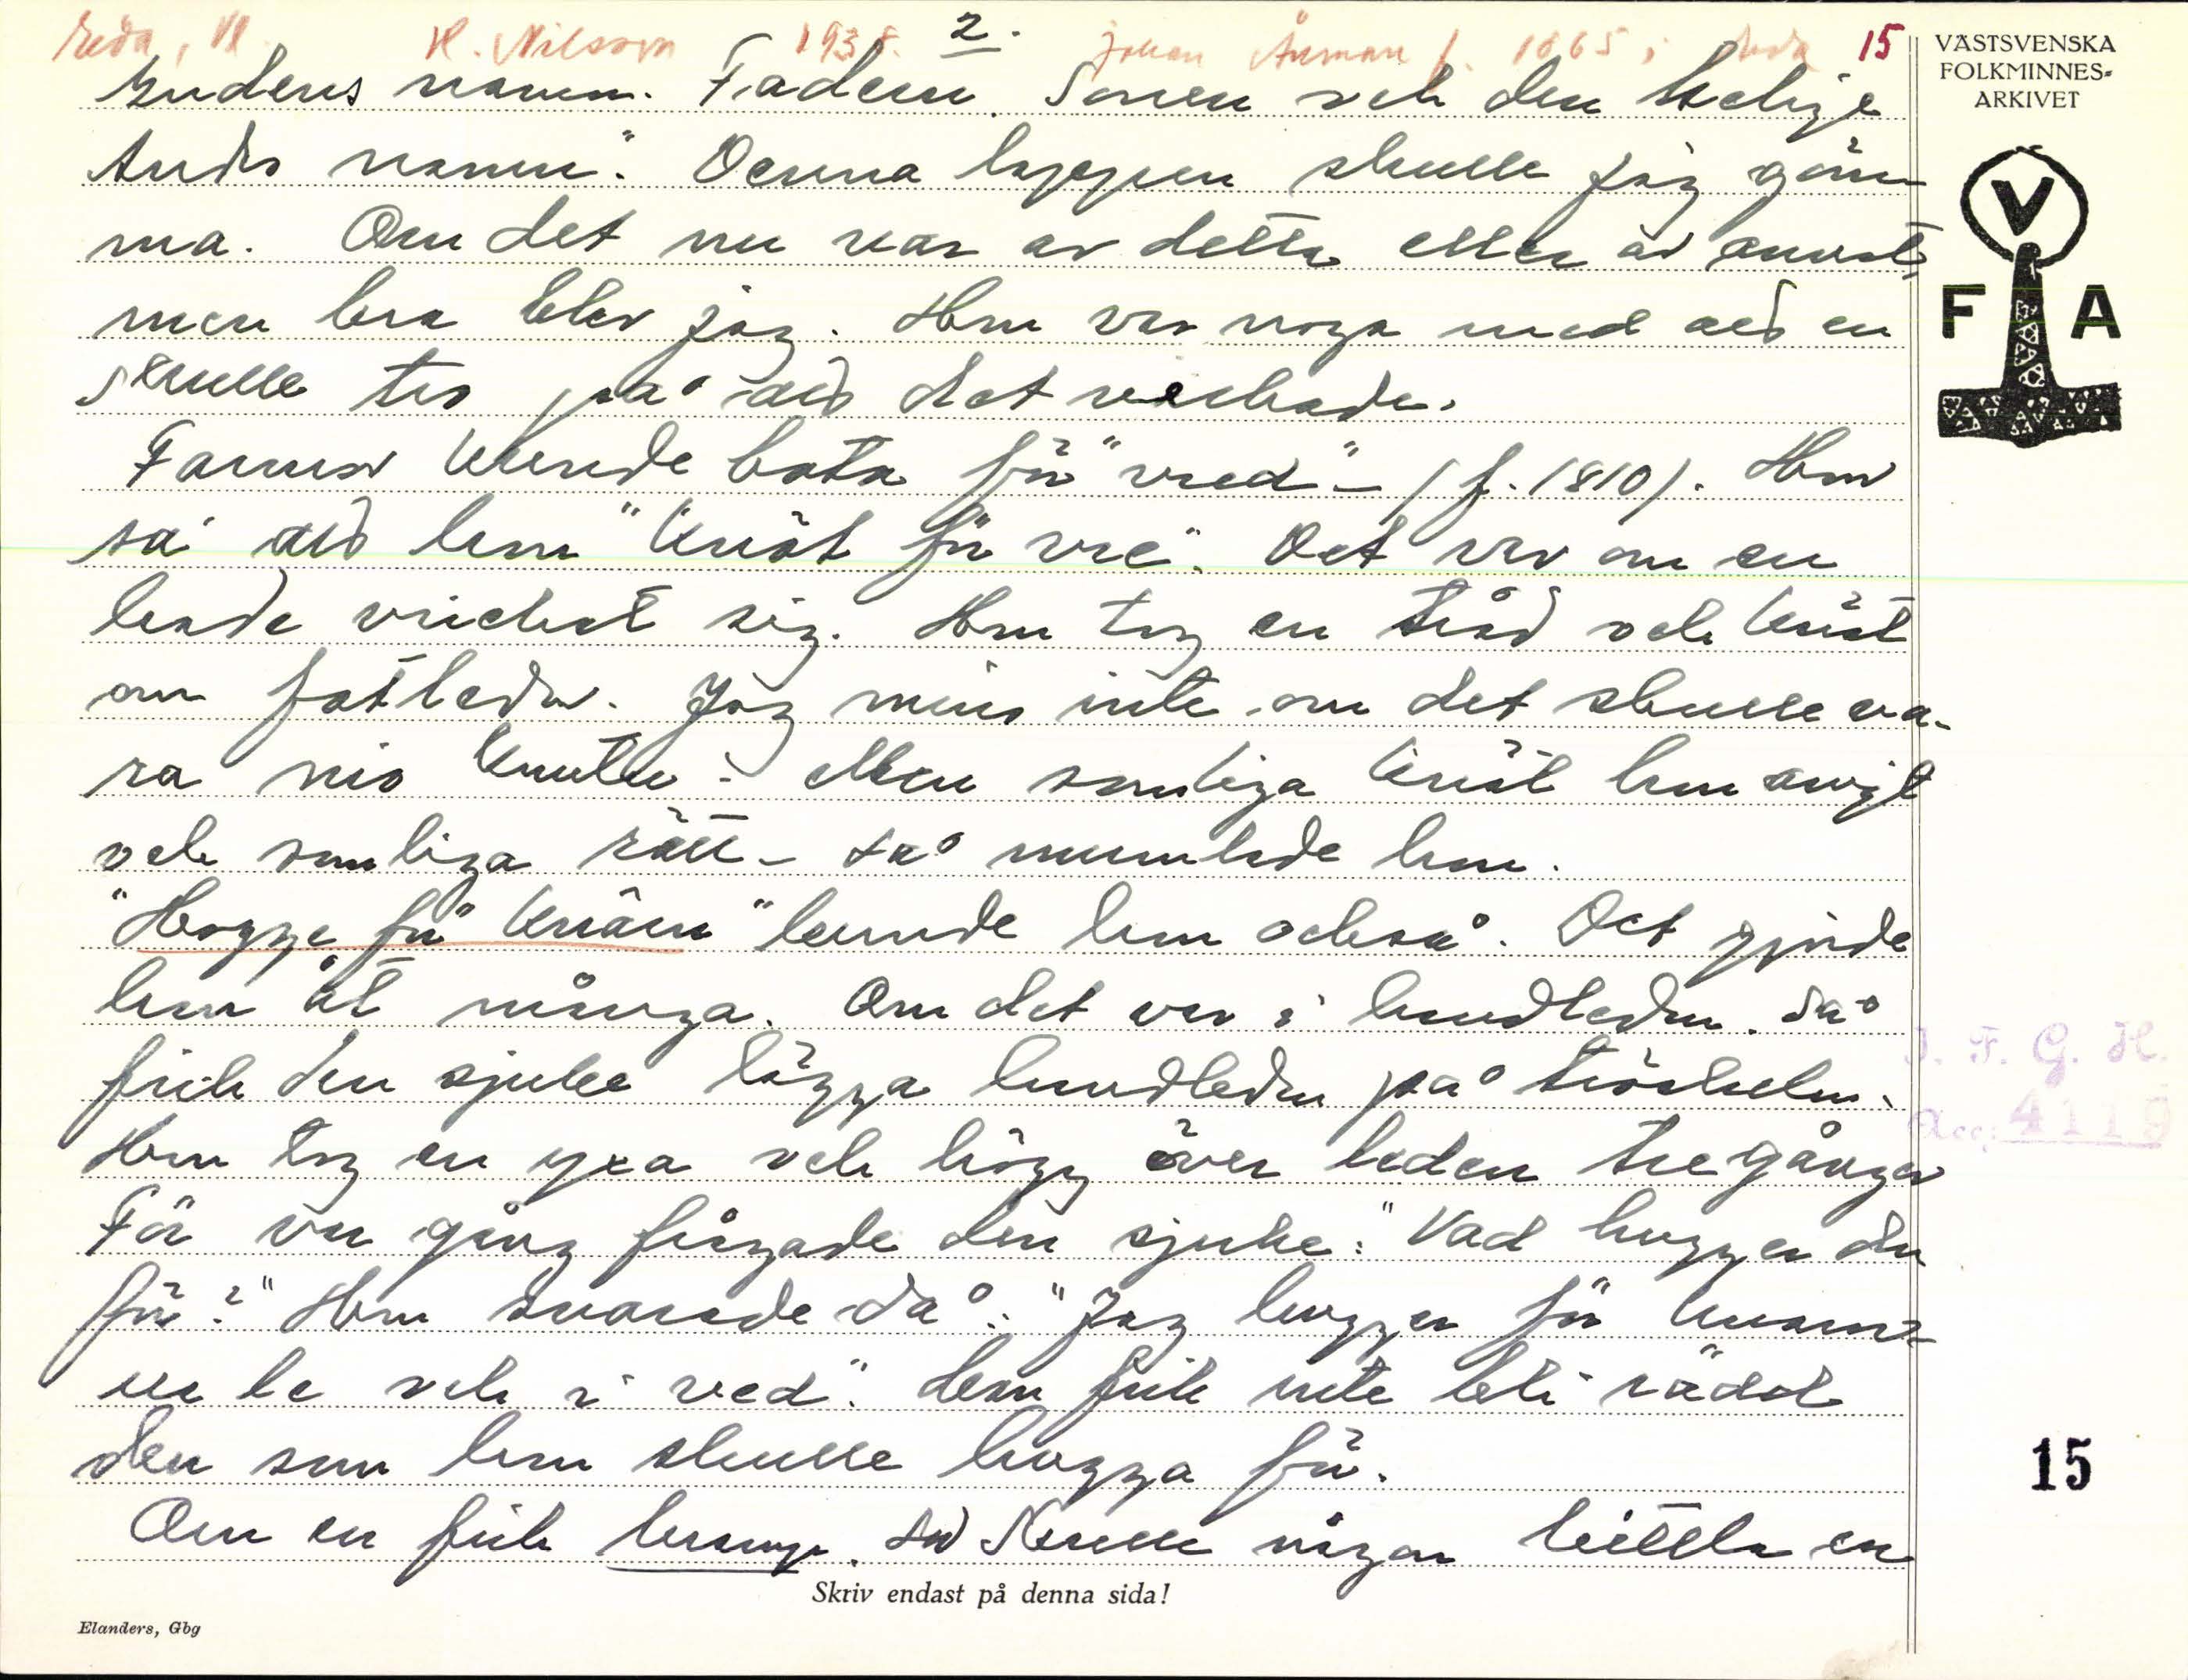 Eda, Vl. H. Nilsson 193 2. Johan Åsman f. 1865 i Eda 15
VÄSTSVENSKA
FOLKMINNES-
ARKIVET
V
F A
Gudens namn. Fadern, Sonen och den helige
Ands namn". Denna lappen skulle jag göm
ma. Om det nu var av detta eller av annat,
men bra blev jag. Hon var noga med att en
skulle tro på att det verkade.
Farmor kunde bota för "vred" - (f. 1810). Hon
sa att hon "knöt för vre". Det var om en
hade vrickat sig. Hon tog en tråd och knöt
om fotleden. Jag mins inte om det skulle va-
ra nio knutar. Men somliga knöt hon avigt
och somliga rätt - så mumlade hon.
"Hogge för knärn" kunde hon också. Det gjorde
hon åt många. Om det var i handleden. Då
fick den sjuke lägga handleden på tröskeln.
Hon tog en yxa och högg över leden tre gånger
För var gång frågade den sjuke: "Vad hugger du
för?" Hon svarade då: "Jag hugger för knarr
och i ved". Han fick inte bli rädd
den som hon skulle hugga för.
Om en fick skulle någon en
J. F. G. H.
Acc: 4119
15
Skriv endast på denna sida!
Elanders, Gbg